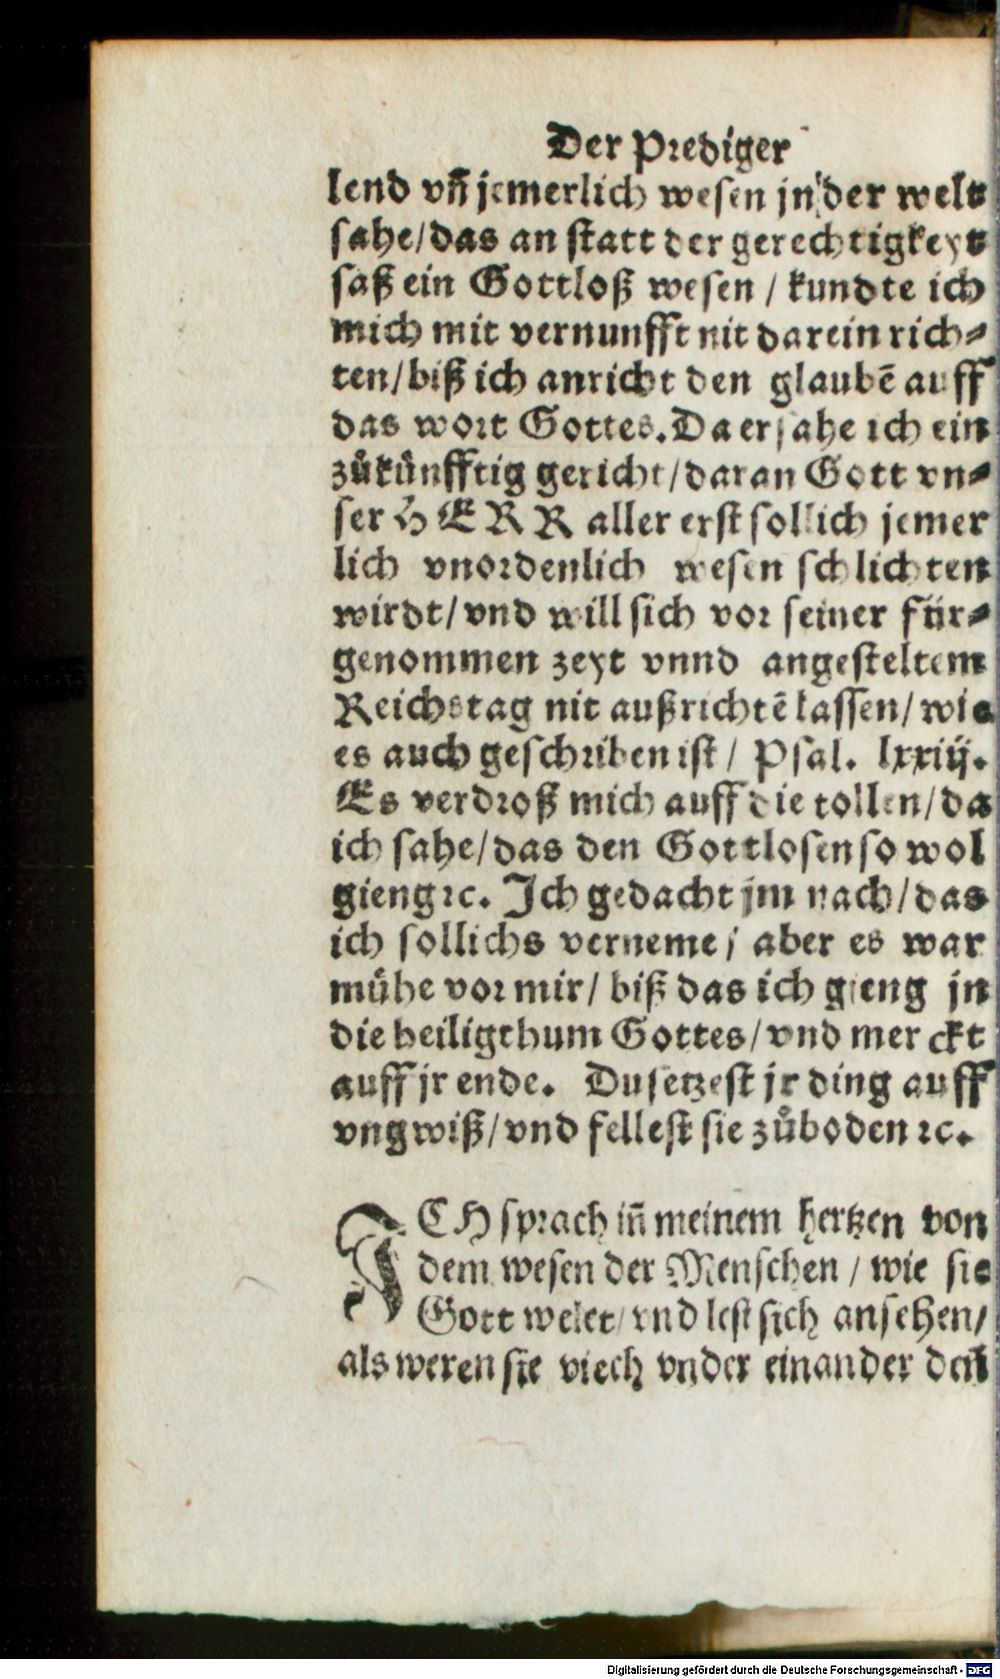 Der Prediger
lend vñ jemerlich wesen jn der welt
sahe/das an statt der gerechtigkeyt
saß ein Gottloß wesen / kundte ich
mich mit vernunfft nit darein rich⸗
ten/biß ich anricht den glaubē auff
das wort Gottes. Da ersahe ich ein
zůkünfftig gericht/daran Gott vn⸗
ser HERR aller erst sollich jemer
lich vnordenlich wesen schlichten
wirdt/vnd will sich vor seiner für⸗
genommen zeyt vnnd angesteltem
Reichstag nit außrichtē lassen/wie
es auch geschriben ist/ Psal. lxxiij.
Es verdroß mich auff die tollen/da
ich sahe/das den Gottlosen so wol
gieng ꝛc. Ich gedacht jm nach/das
ich sollichs verneme/ aber es war
mühe vor mir/ biß das ich gieng jn
die heiligthum Gottes/vnd merckt
auff jr ende. Du setzest jr ding auff
vngwiß/vnd fellest sie zůboden ꝛc.
ICH sprach iñ meinem hertzen von
dem wesen der Menschen / wie sie
Gott welet/vnd lest sich ansehen/
als weren sie viech vnder einander deñ
Digitalisierung gefördert durch die Deutsche Forschungsgemeinschaft - DFG